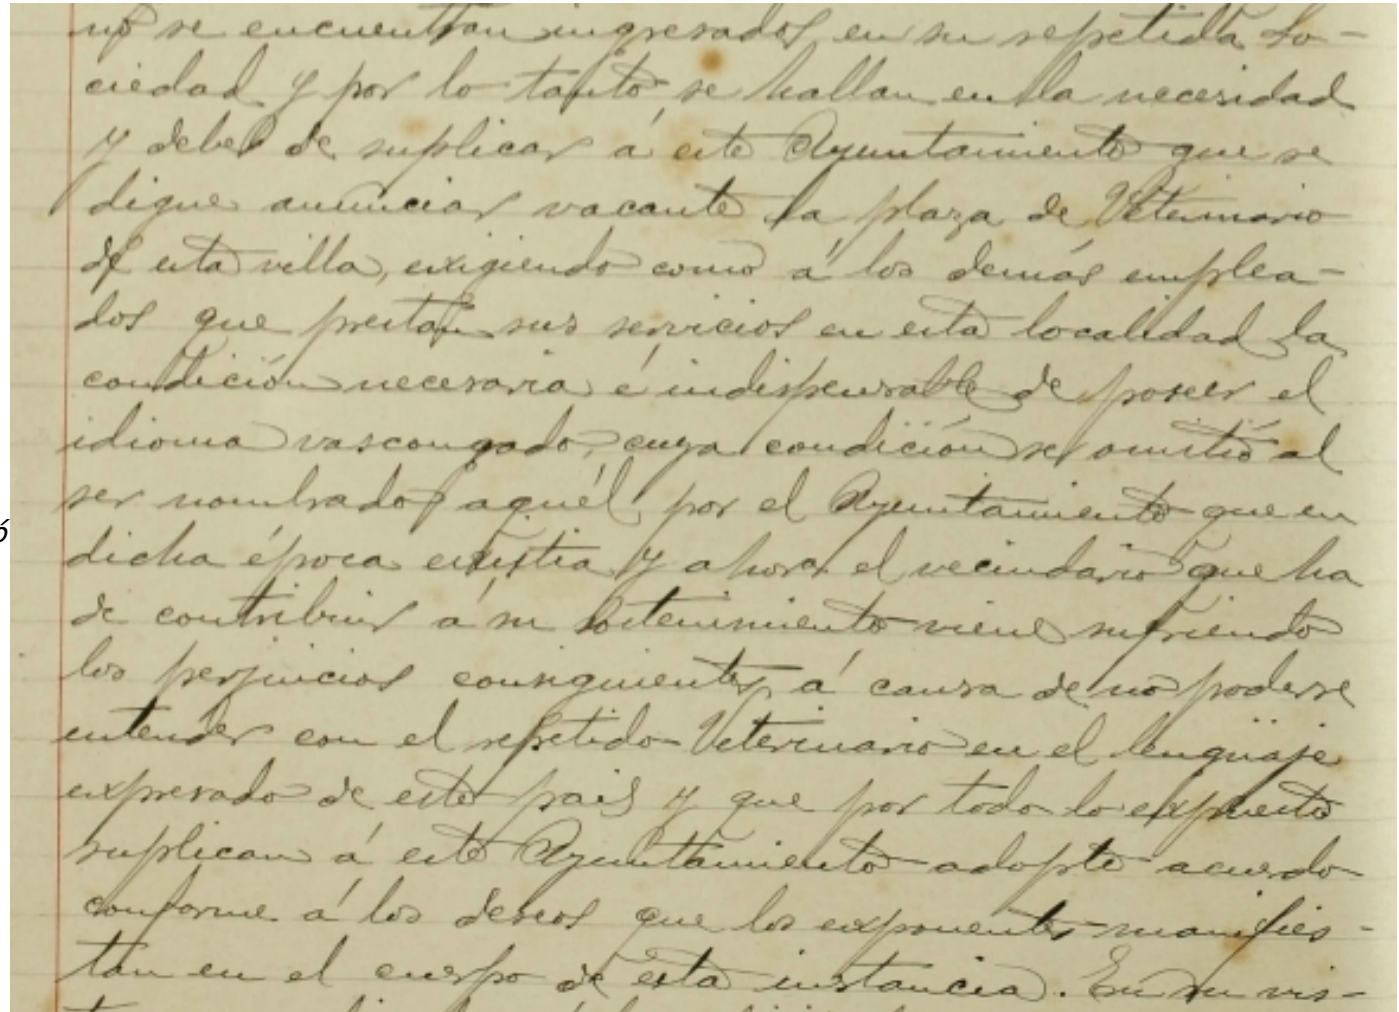 no se encuentran ingresados en su repetida So-
ciedad y por lo tanto se hallan en la necesidad
y deber de suplicar á este Ayuntamiento que se
digne anunciar vacante la plaza de Veterinario
de esta villa, exigiendo como á los demás emplea-
dos que prestan sus servicios en esta localidad la
condición necesaria é indispensable de poseer el
idioma vascongado, cuya condición se omitió al
ser nombrado aquél por el Ayuntamiento que en
dicha época existia y ahora el vecindario que ha
de contribuir á su sostenimiento viene sufriendo
los perjuicios consiguientes á causa de no poderse
entender con el repetido Veterinario en el lenguaje
expresado de este pais y que por todo lo expuesto
suplican á este Ayuntamiento adopte acuerdo
conforme á los deseos que los exponentes manifies-
tan en el cuerpo de esta instancia. En su vis-